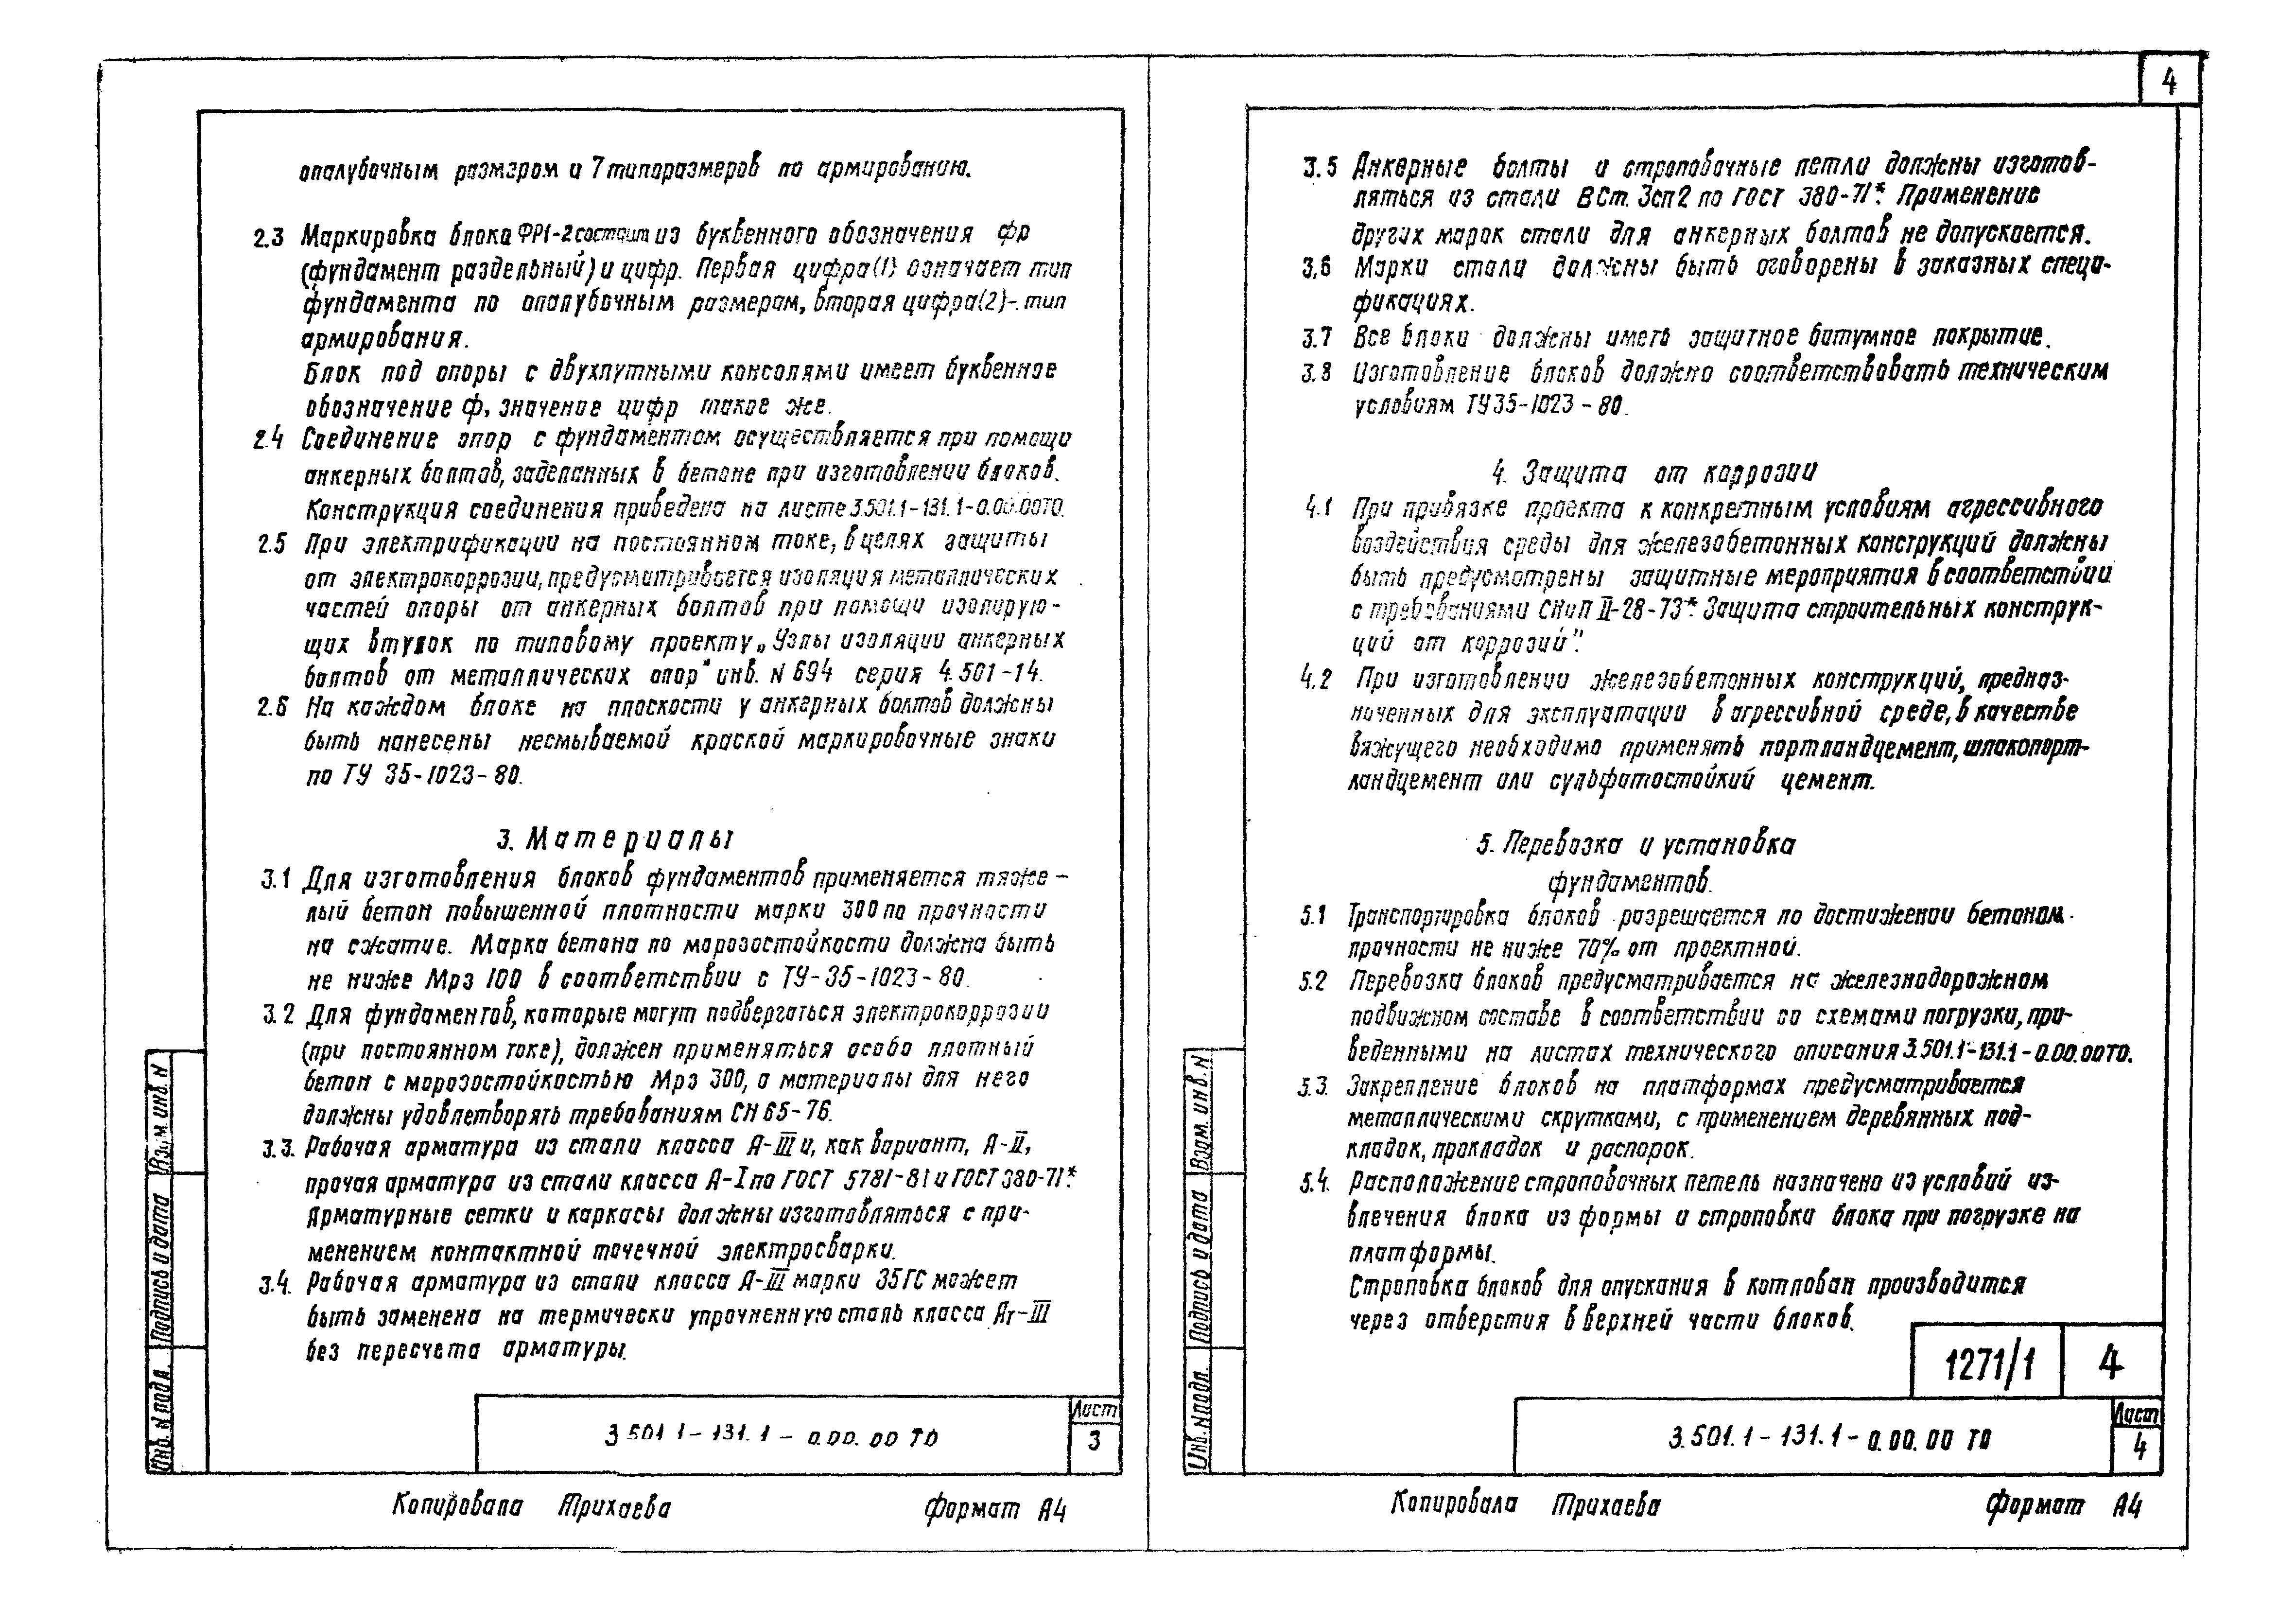 4
опалубочным размерам и 7 типоразмеров по армированию.
2.3 Маркировка блока ФР1-2 состоит из буквенного обозначения ФР
(фундамент раздельный) и цифр. Первая цифра (1) означает тип
фундамента по опалубочным размерам, вторая цифра (2)-тип
армирования.
Блок под опоры с двухпутными консолями имеет буквенное
обозначение Ф, значение цифр такое же.
2.4 Соединение опор с фундаментом осуществляется при помощи
анкерных болтов, заделанных в бетоне при изготовлении блоков.
Конструкция соединения приведена на листе 3.501.1-131.1-0.00.00ТО.
2.5 При электрификации на постоянном токе, в целях защиты
от электрокоррозии, предусматривается изоляция металлических
частей опоры от анкерных болтов при помощи изолирую-
щих втулок по типовому проекту „Узлы изоляции анкерных
болтов от металлических опор" инв. N 694 серия 4.501-14.
2.6 На каждом блоке на плоскости у анкерных болтов должны
быть нанесены несмываемой краской маркировочные знаки
по ТУ 35-1023-80.
3. Материалы
3.1 Для изготовления блоков фундаментов применяется тяже-
лый бетон повышенной плотности марки 300 по прочности
на сжатие. Марка бетона по морозостойкости должна быть
не ниже Мрз 100 в соответствии с ТУ-35-1023-80.
3.2 Для фундаментов, которые могут подвергаться электрокоррозии
(при постоянном токе), должен применяться особо плотный
бетон с морозостойкостью Мрз 300, а материалы для него
должны удовлетворять требованиям СН 65-76.
3.3. Рабочая арматура из стали класса А-III и, как вариант, А-II,
прочая арматура из стали класса А-I по ГОСТ 5781-81 и ГОСТ 380-71*.
Арматурные сетки и каркасы должны изготовляться с при-
менением контактной точечной электросварки.
3.4. Рабочая арматура из стали класса А-III марки 35ГС может
быть заменена на термически упрочненную сталь класса Ат-III
без пересчета арматуры.
Инв. N подл.
Подпись и дата
Взам. инв. N
3 501 1-131.1-0.00.00 ТО
Лист
3
Копировала Трихаева
Формат А4
3.5 Анкерные болты и строповочные петли должны изготов-
ляться из стали ВСт. 3сп2 по ГОСТ 380-71*. Применение
других марок стали для анкерных болтов не допускается.
3.6 Марки стали должны быть оговорены в заказных специ-
фикациях.
3.7 Все блоки должны иметь защитное битумное покрытие.
3.8 Изготовление блоков должно соответствовать техническим
условиям ТУ35-1023-80.
4. Защита от коррозии
4.1 При привязке проекта к конкретным условиям агрессивного
воздействия среды для железобетонных конструкций должны
быть предусмотрены защитные мероприятия в соответствии
с требованиями СНиП II-28-73* Защита строительных конструк-
ций от коррозий".
4.2 При изготовлении железобетонных конструкций, предназ-
наченных для эксплуатации в агрессивной среде, в качестве
вяжущего необходимо применять портландцемент, шлакопорт-
ландцемент или сульфатостойкий цемент.
5. Перевозка и установка
фундаментов.
5.1 Транспортировка блоков разрешается по достижении бетоном
прочности не ниже 70% от проектной.
5.2 Перевозка блоков предусматривается на железнодорожном
подвижном составе в соответствии со схемами погрузки, при-
веденными на листах технического описания 3.501.1-131.1-0.00.00ТО.
5.3. Закрепление блоков на платформах предусматривается
металлическими скрутками, с применением деревянных под-
кладок, прокладок и распорок.
5.4. Расположение строповочных петель назначено из условий из-
влечения блока из формы и строповки блока при погрузке на
платформы.
Строповка блоков для опускания в котлован производится
через отверстия в верхней части блоков.
1271/1
4
Инв. N подл.
Подпись и дата
Взам. инв. N
3.501.1-131.1-0.00.00 ТО
Лист
4
Копировала Трихаева
Формат А4